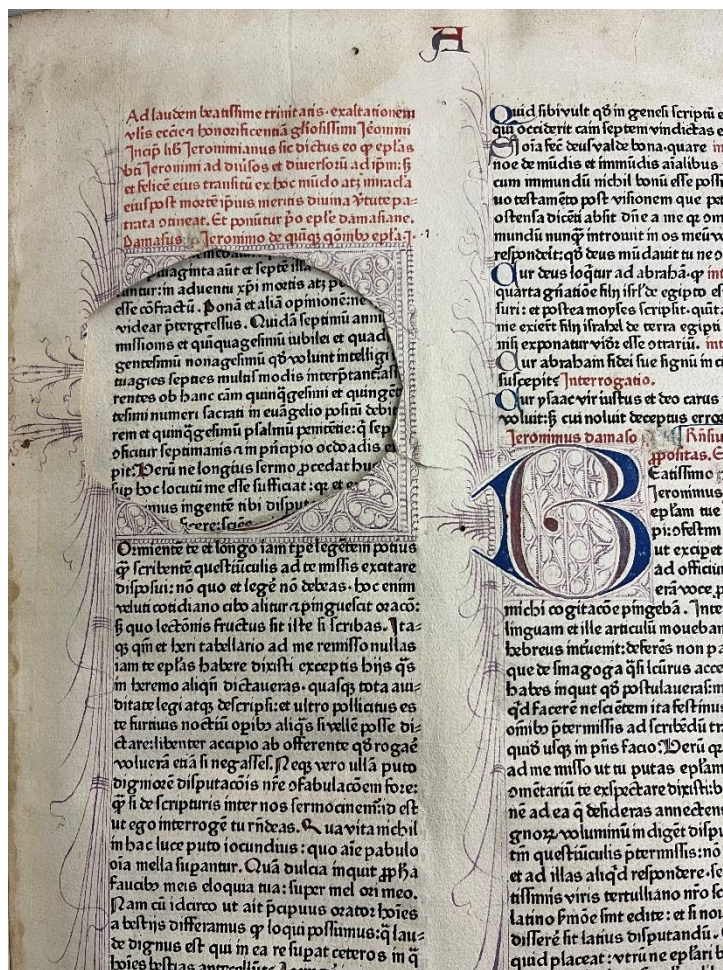 A
Ad laudem beatissime trinitatis · exaltationem
vlis eccie ⁊ honorificentiā gl̄iosissimi Ieronimi
Incip̄ lib̄ Ieronimianus sic dictus eo ꝙ ep̄las
bt̄i Jeronimi ad diusos et diuersoꝝ ad ip̄m: ꝫ
et felicē eius transitū ex hoc mūdo atꝫ miracła
eius post mortē ip̄ius meritis diuina v̄tute pa-
trata ↄtineat. Et ponūtur p̄o ep̄le damasiane.
Damasus Jeronimo de quīqꝫ q̄omb᷒ ep̄la. I.
quaginta aūt et septē illa
cuntur: in aduentu xp̄i mortis atꝫ
esse ↄfractū. Ponā et aliā opinionē: ne
videar p̄tergressus. Quidā septimū annū
missionis et quīquagesimū iubilei et quad
gentesimū nonagesimū qd̄ volunt intelligi
tuagies septies multis modis interp̄tant: as
rentes ob hanc cām quīqgesimi et quinget
tesimi numeri sacrati in euāgelio positū debit
rem et quinqgesimū psalmū penitētie: q̄ sep
ↄficitur septimanis ⁊ in p̄ncipio ocdoadis
pit: Verū ne longius sermo ꝓcedat huc
sup hoc locutū me esse sufficiat: qꝛ et
mus ingentē tibi disput
Ormientē te et longo iam tp̄e legētem potius
ꝙ scribentē questiūculis ad te missis excitare
disposui: nō quo et legē nō debeas · hoc enim
veluti cotidiano cibo alitur ⁊ pīnguescit oracō:
ꝫ quo lectōnis fructus sit iste si scribas. Ita-
qꝫ qm̄ et heri tabellario ad me remisso nullas
iam te ep̄las habere dixisti exceptis hijs q̄s
in heremo aliqn̄ dictaueras · quasqꝫ tota aui-
ditate legi atqꝫ descripsi: et ultro pollicitus es
te furtiuis noctiū opib᷒ aliq̄s si velle posse di-
ctare: libenter accipio ab offerente qd̄ rogaē
volueā etiā si negasses. Neqꝫ vero ullā puto
digniorē disputacōis nr̄e ↄfabulacōem fore:
ꝙ si de scripturis inter nos sermocinem: id est
ut ego interrogē tu rn̄deas. Qua vita nichil
in hac luce puto iocundius: quo aīe pabulo
oīa mella supantur. Quā dulcia inquit ꝓph̄a
faucib᷒ meis eloquia tua: super mel ori meo.
Nam cū idcirco ut ait p̄cipuus orator hoīes
a bestijs differamus ꝙ loqui possumus: q̄ lau-
de dignus est qui in ea re supat ceteros in q̄
hoīes bestias antecellūt.
Quid sibi vult qd̄ in genesi scriptū
qui occiderit cain septem vindictas
Si oīa fec̄ deus valde bona · quare
noe de mūdis et immūdis aīalibus
cum immundū nichil bonū esse possi
uo testamēto post visionem que pe
ostensa dicēti absit dn̄e a me qꝛ om
mundū nunꝙ introiuit in os meū
respondeit: qd̄ deus mūdauit tu ne
Cur deus loq̄tur ad abrahā · ꝙ
quarta gn̄atiōe filij isrl̄ de egipto
suri: et postea moyses scripsit · quīt
me exierūt filij israhel de terra egipti
nisi exponatur vid̄r esse ↄtrariū.
Cur abraham fidei sue signū in ci
suscepit: Interrogatio.
Cur ysaac vir iustus et deo carus
voluit: ꝫ cui noluit deceptus errore
Ieronimus damaso
ꝓpositas.
Beatissimo
Jeronimus
ep̄lam tue
ut excipet
ad officiū
erā voce
michi cogitacōe pingebā. Inte
linguam et ille articulū mouebam
hebreus intuenit: deferēs non pa
que de sinagoga q̄si lcūrus acce
habes inquit qd̄ postulaueras:
q̄d facerē nesciētem ita festinus
omib᷒ p̄termissis ad scribēdū tr
quid̄ usqꝫ in p̄ns facio: Verū
ad me misso ut tu putas ep̄lam
ↄmētariū te exspectare dixisti:
nē ad ea q̄ desideras annectens
gnoꝝ voluminū indiget disp
tm̄ questiūculis p̄termissis: nō
et ad illas aliq̄d respondere ·
tissimis viris tertulliano nr̄o
latino s̄mōe sint edite: et si
disserē sit latius disputandū.
quid placeat: vtrū ne eplari